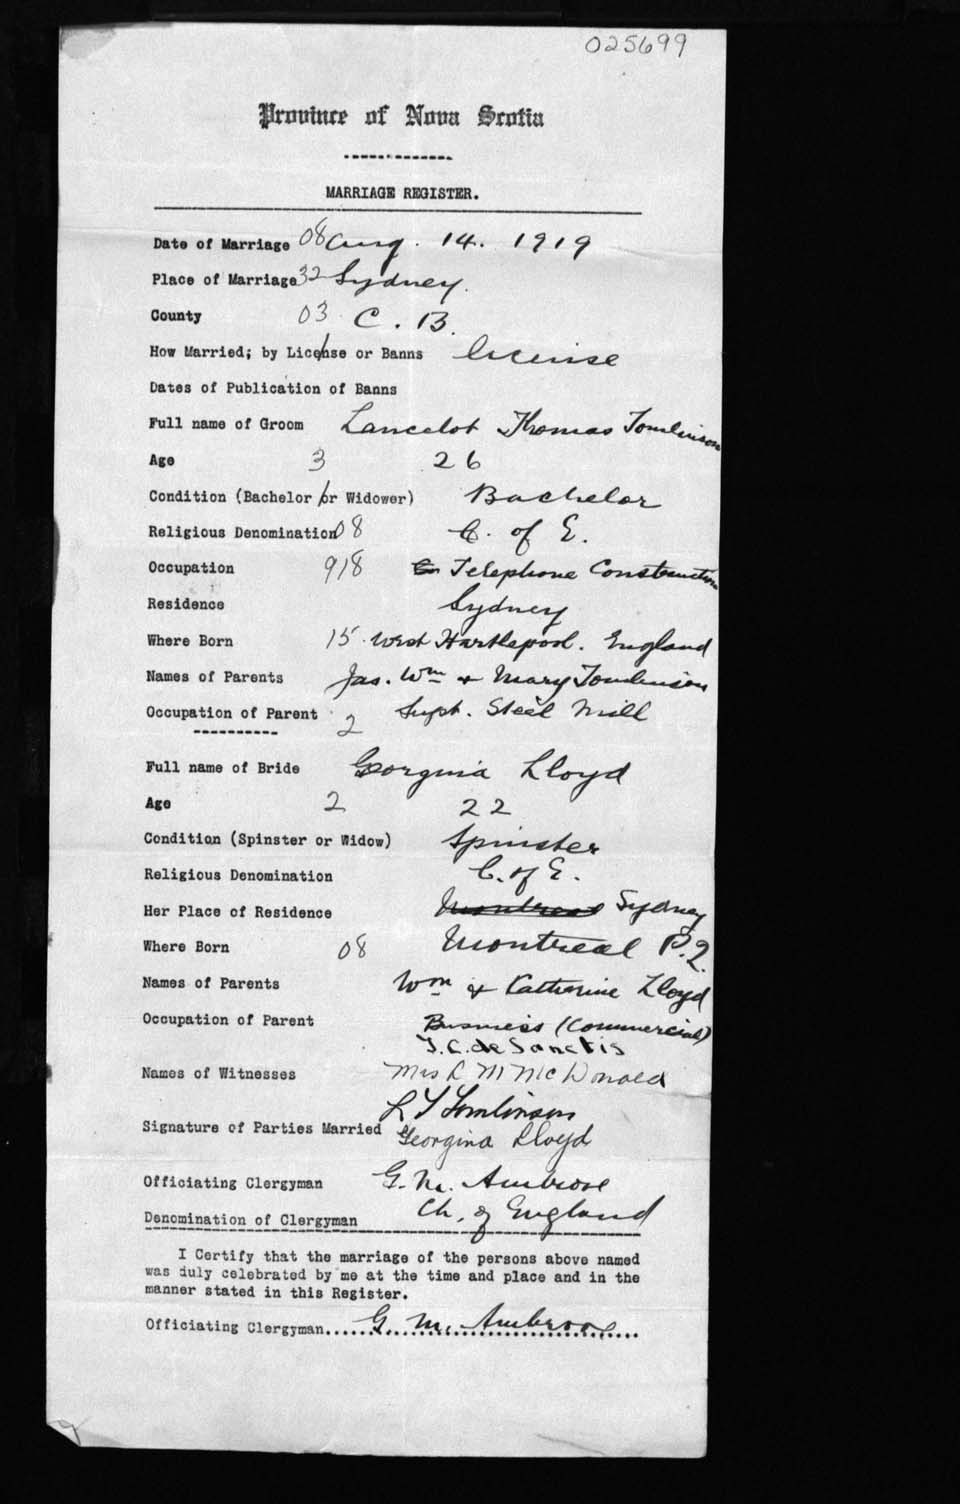 025699
Province of Nova Scotia
MARRIAGE REGISTER.
Date of Marriage 08 Aug. 14. 1919
Place of Marriage 32 Sydney.
County 03 C. B.
How Married; by License or Banns license
Dates of Publication of Banns
Full name of Groom Lancelot Thomas Tomlinson
Age 3 26
Condition (Bachelor or Widower) Bachelor
Religious Denomination 08 C. of E.
Occupation 918 Telephone Construction
Residence Sydney
Where Born 15 West Hartlepool. England
Names of Parents Jas. Wm & Mary Tomlinson
Occupation of Parent 2 Supt. Steel Mill
Full name of Bride Georgina Lloyd
Age 2 22
Condition (Spinster or Widow) Spinster
Religious Denomination C. of E.
Her Place of Residence Montreal Sydney
Where Born 08 Montreal P.Q.
Names of Parents Wm & Katherine Lloyd
Occupation of Parent Business (Commercial)
T.C. de Sanctis
Names of Witnesses Mrs R M McDonald
L T Tomlinson
Signature of Parties Married Georgina Lloyd
Officiating Clergyman G. M. Ambrose
Denomination of Clergyman Ch. of England
I Certify that the marriage of the persons above named
was duly celebrated by me at the time and place and in the
manner stated in this Register.
Officiating Clergyman...... G. M. Ambrose